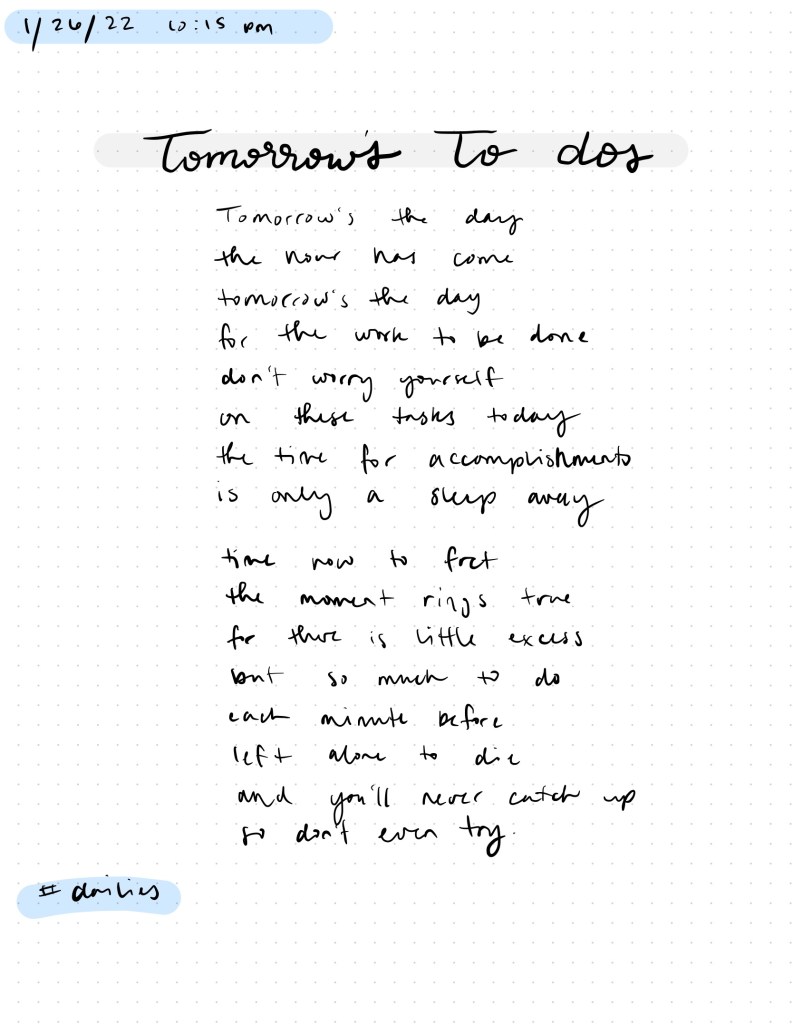 1/26/22 10:15 pm
Tomorrow's To dos
Tomorrow's the day
the hour has come
tomorrow's the day
for the work to be done
don't worry yourself
on these tasks today
the time for accomplishments
is only a sleep away
time now to fret
the moment rings true
for there is little excess
but so much to do
each minute before
left alone to die
and you'll never catch up
so don't even try.
# dailies